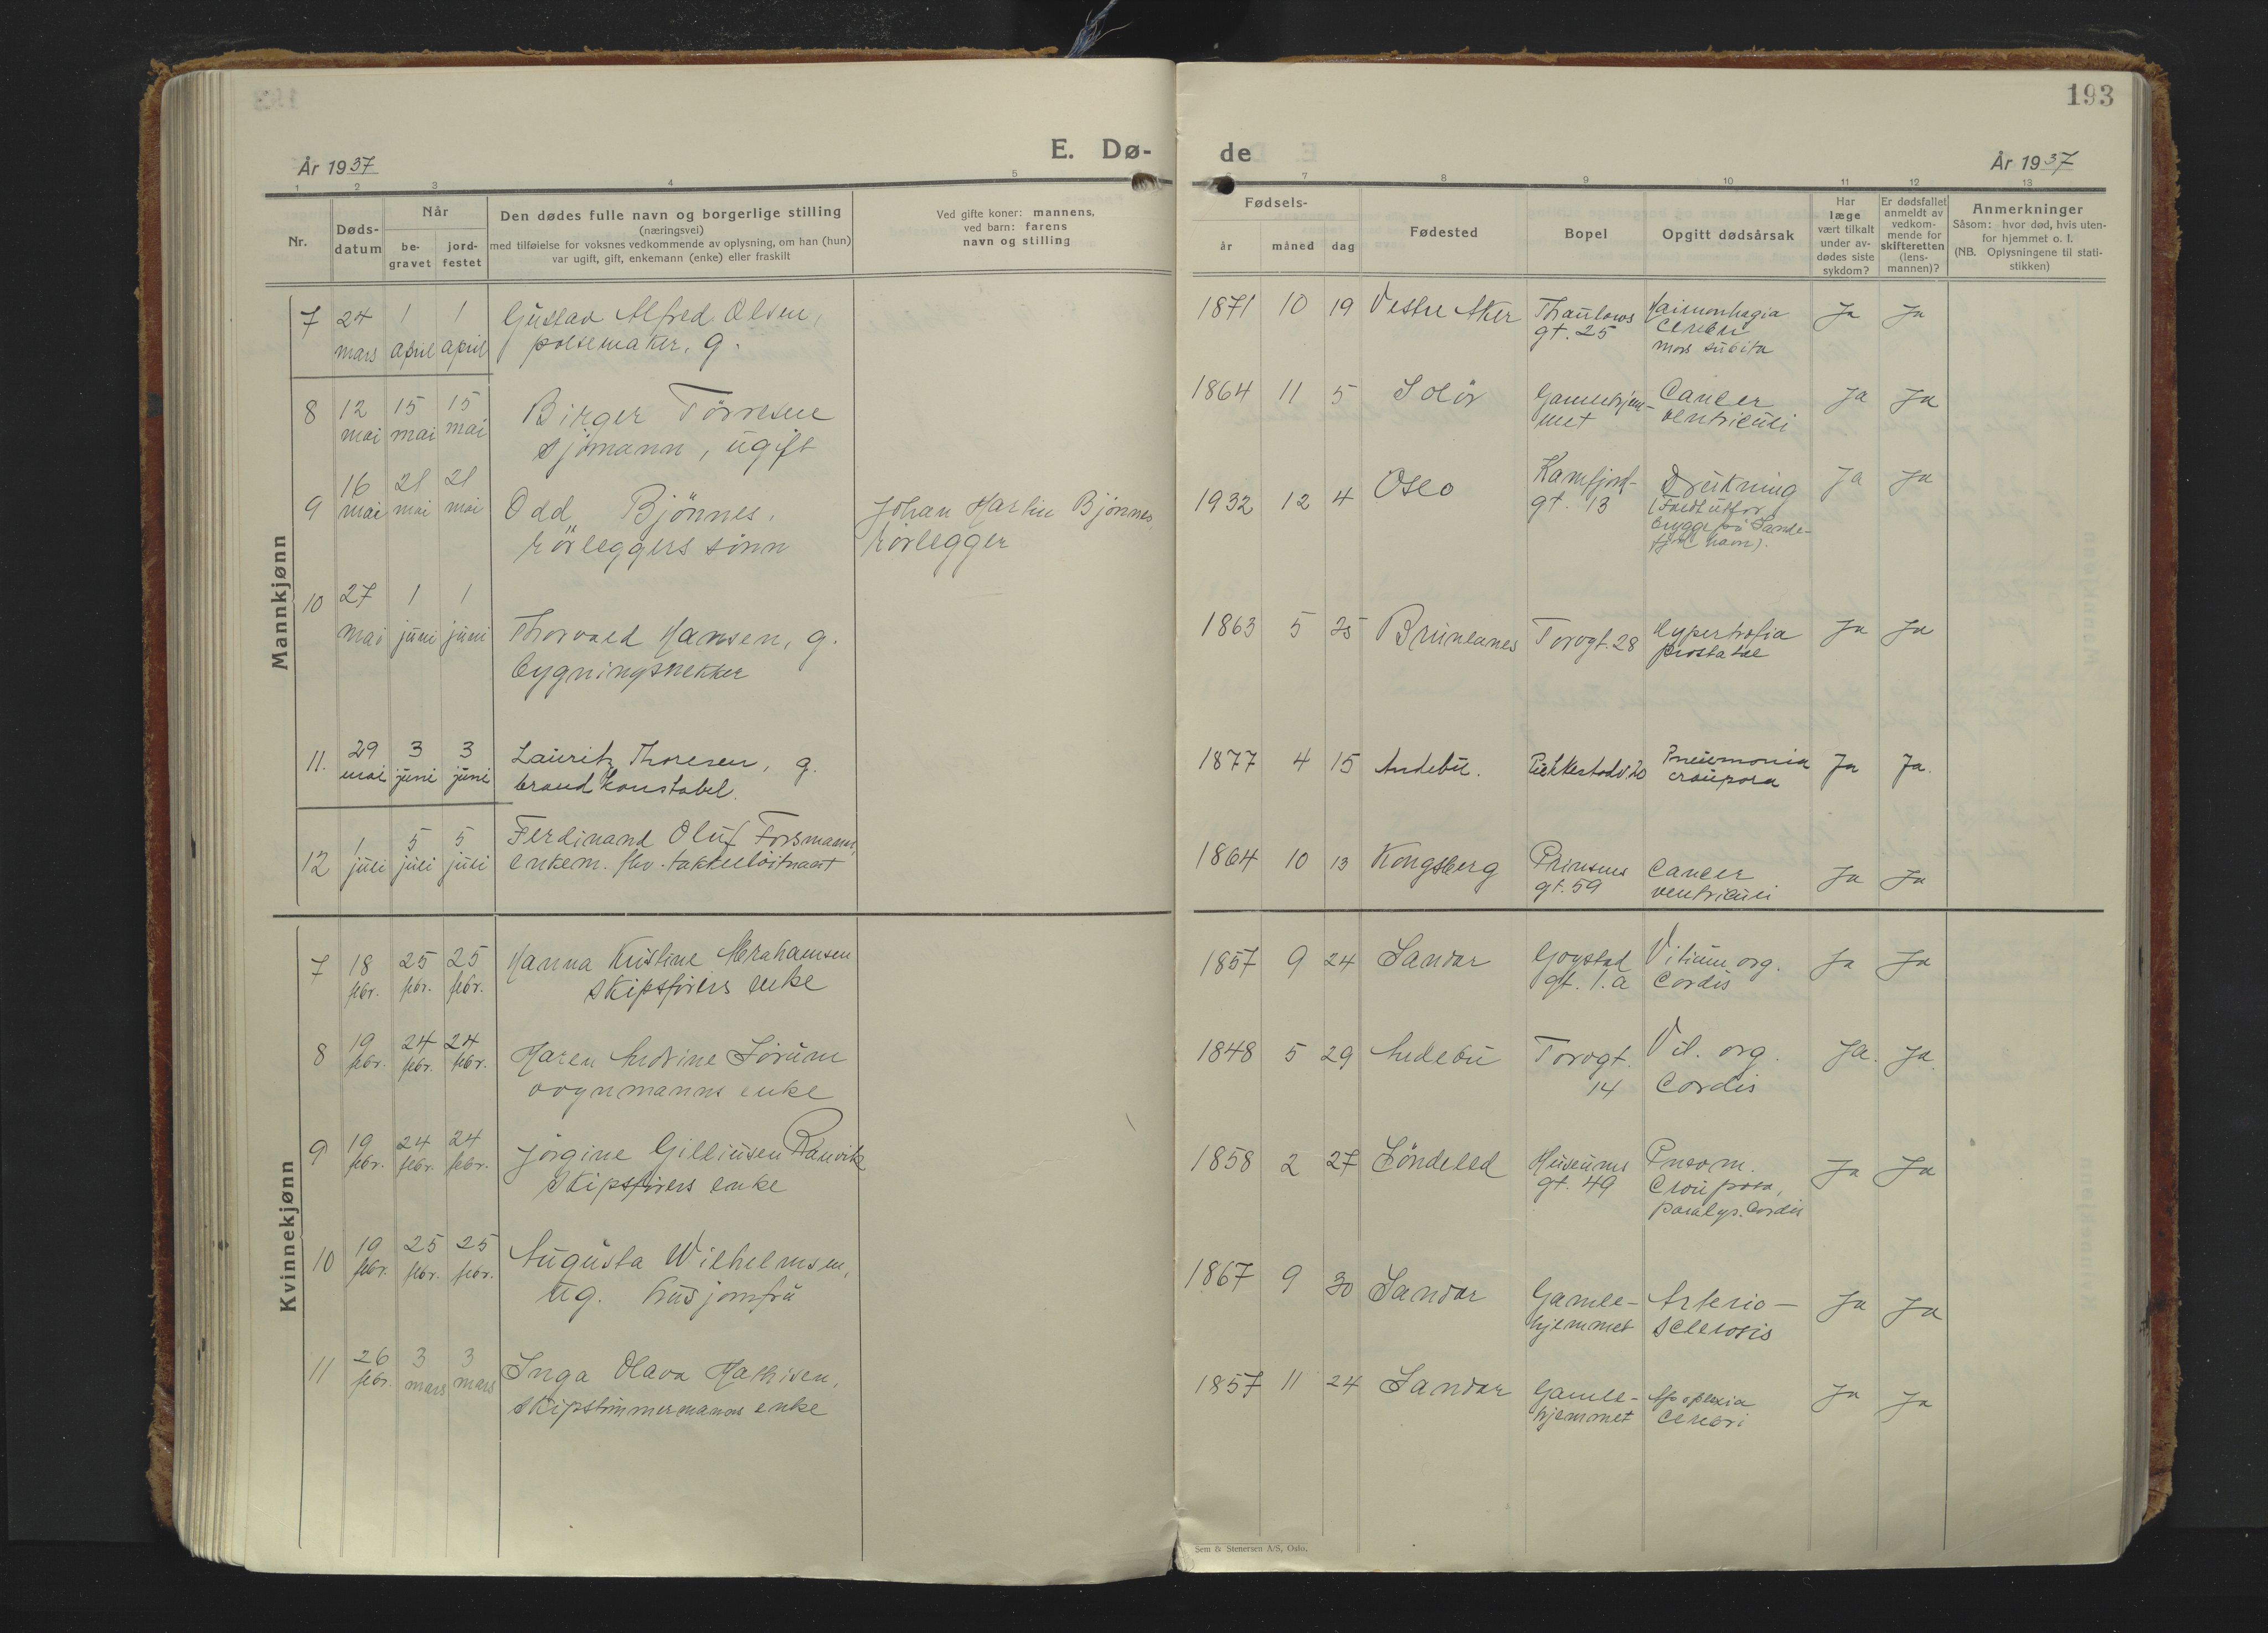 193
E. Dø-
de
År 1937
År 1937
1 2 3 4 5 6 7 8 9 10 11 12 13
Nr.
Døds-
datum
Når
be-
gravet
jord-
festet
Den dødes fulle navn og borgerlige stilling
(næringsvei)
med tilføielse for voksnes vedkommende av oplysning, om han (hun)
var ugift, gift, enkemann (enke) eller fraskilt
Ved gifte koner: mannens,
ved barn: farens
navn og stilling
Fødsels-
år måned dag
Fødested
Bopel
Opgitt dødsårsak
Har
læge
vært tilkalt
under av-
dødes siste
sykdom?
Er dødsfallet
anmeldt av
vedkom-
mende for
skifteretten
(lens-
mannen)?
Anmerkninger
Såsom: hvor død, hvis uten-
for hjemmet o. l.
(NB. Oplysningene til stati-
stikken)
Mannkjønn
7 24 1 1 Gustav Alfred Olsen, 1871 10 19 Vestre Aker Thaulows Haimorrhagia Ja Ja
mars april april pølsemaker, g. gt. 25 cerebri
mors subita
8 12 15 15 Birger Tørresen 1864 11 5 Solør Gamlehjem- Cancer Ja Ja
mai mai mai sjømann, ugift met ventriculi
9 16 21 21 Odd Bjönnes, Johan Martin Bjönnes, 1932 12 4 Oslo Kamfjord- Drukning Ja Ja
mai mai mai rörleggers sönn rörlegger gt. 13 (Falt utfor
brygge på Sande-
fj. havn).
10 27 1 1 Thorvald Hansen, g. 1863 5 25 Brunlanes Torvgt. 28 Hypertrofia Ja Ja
mai juni juni bygningsnekker prostatae
11. 29 3 3 Lauritz Thoresen, g. 1877 4 15 Andebu. Pukkestadv. 20 Pneumonia Ja Ja.
mai juni juni brandkonstabel. croupora
12 1 5 5 Ferdinand Oluf Forsmann, 1864 10 13 Kongsberg Prinsens Cancer Ja Ja
juli juli juli enkem. fhv. takkelløitnant gt. 59 ventriculi
Kvinnekjønn
7 18 25 25 Hanna Kristine Abrahamsen 1857 9 24 Sandar Gogstad Vitium org. Ja Ja
febr. febr. febr. skipsførers enke gt. 1.a Cordis
8 19 24 24 Maren Andrine Sørum 1848 5 29 Andebu Torvgt. Vit. org. Ja. Ja.
febr. febr. febr. vognmanns enke 14 Cordis
9 19 24 24 Jörgine Gilliusen Ranvik 1858 2 27 Söndeled Museums Pneom. Ja Ja
febr. febr. febr. Skipsførers enke gt. 49 Crouposa,
paralys. Cordis
10 19 25 25 Augusta Wilhelmsen, 1867 9 30 Sandar Gamle- Arterio- Ja Ja
febr. febr. febr. ug. husjomfru hjemmet sclerosis
11 26 3 3 Inga Olava Mathisen, 1857 11 24 Sandar Gamle- Apoplexia Ja Ja
febr. mars mars skipstømmermanns enke hjemmet Cerebri
Sem & Stenersen A/S, Oslo.